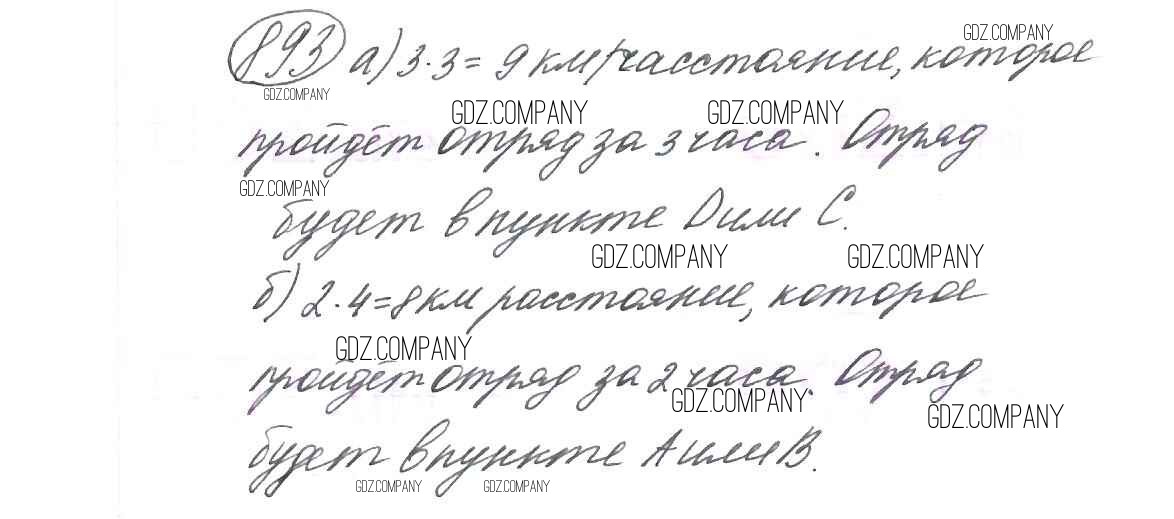 893 а) 3·3= 9 км расстояние, которое
GDZ.COMPANY
GDZ.COMPANY
GDZ.COMPANY GDZ.COMPANY
пройдёт отряд за 3 часа. Отряд
GDZ.COMPANY
будет в пункте D или C.
GDZ.COMPANY GDZ.COMPANY
б) 2·4=8 км расстояние, которое
GDZ.COMPANY
пройдёт отряд за 2 часа. Отряд
GDZ.COMPANY GDZ.COMPANY
будет в пункте A или B.
GDZ.COMPANY GDZ.COMPANY